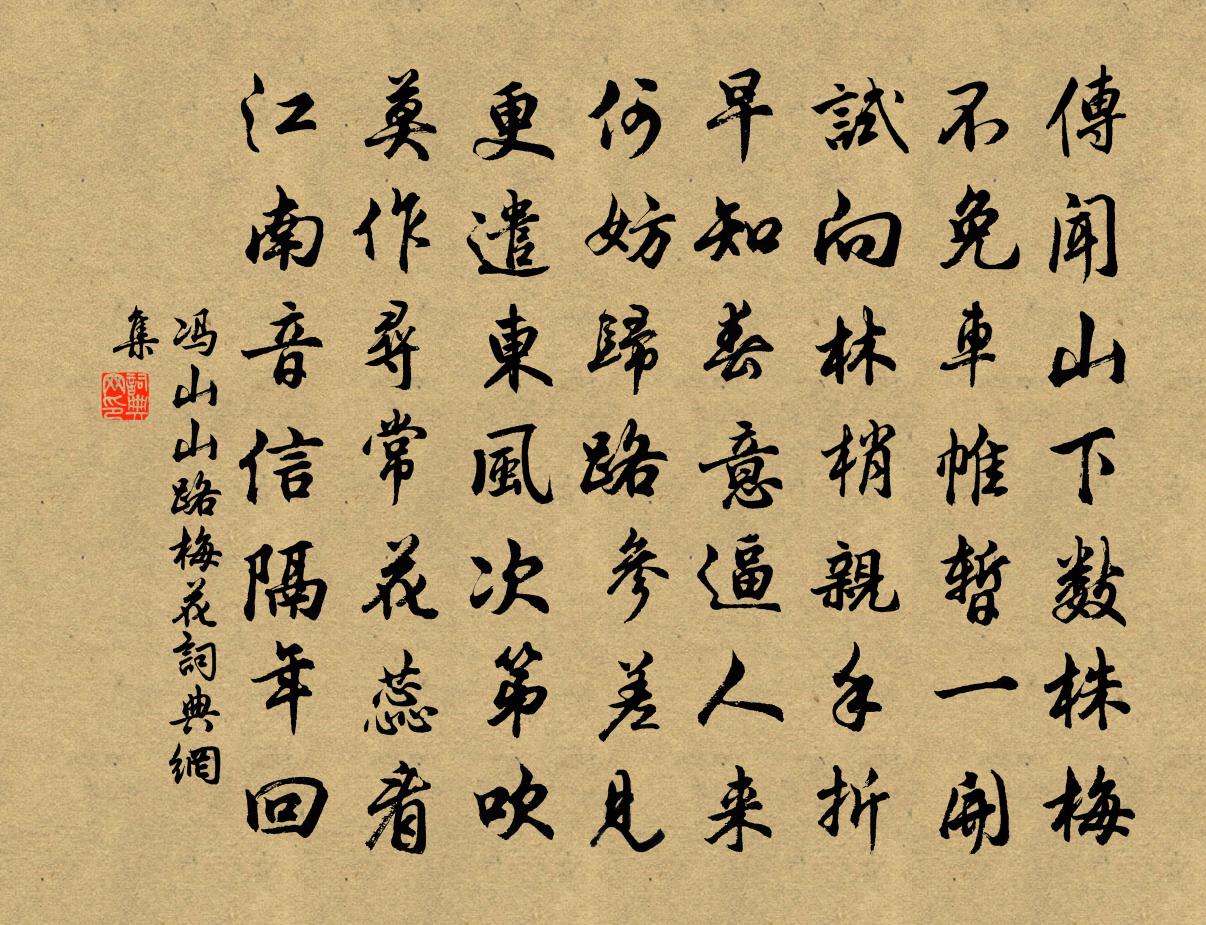 傳聞山下數株梅
不免車帷暫一開
試向林梢親手折
早知春意逼人来
何妨歸路參差見
更遣東風次第吹
莫作尋常花蕊看
江南音信隔年回
冯山山路梅花詞典網
集
詞典
网印